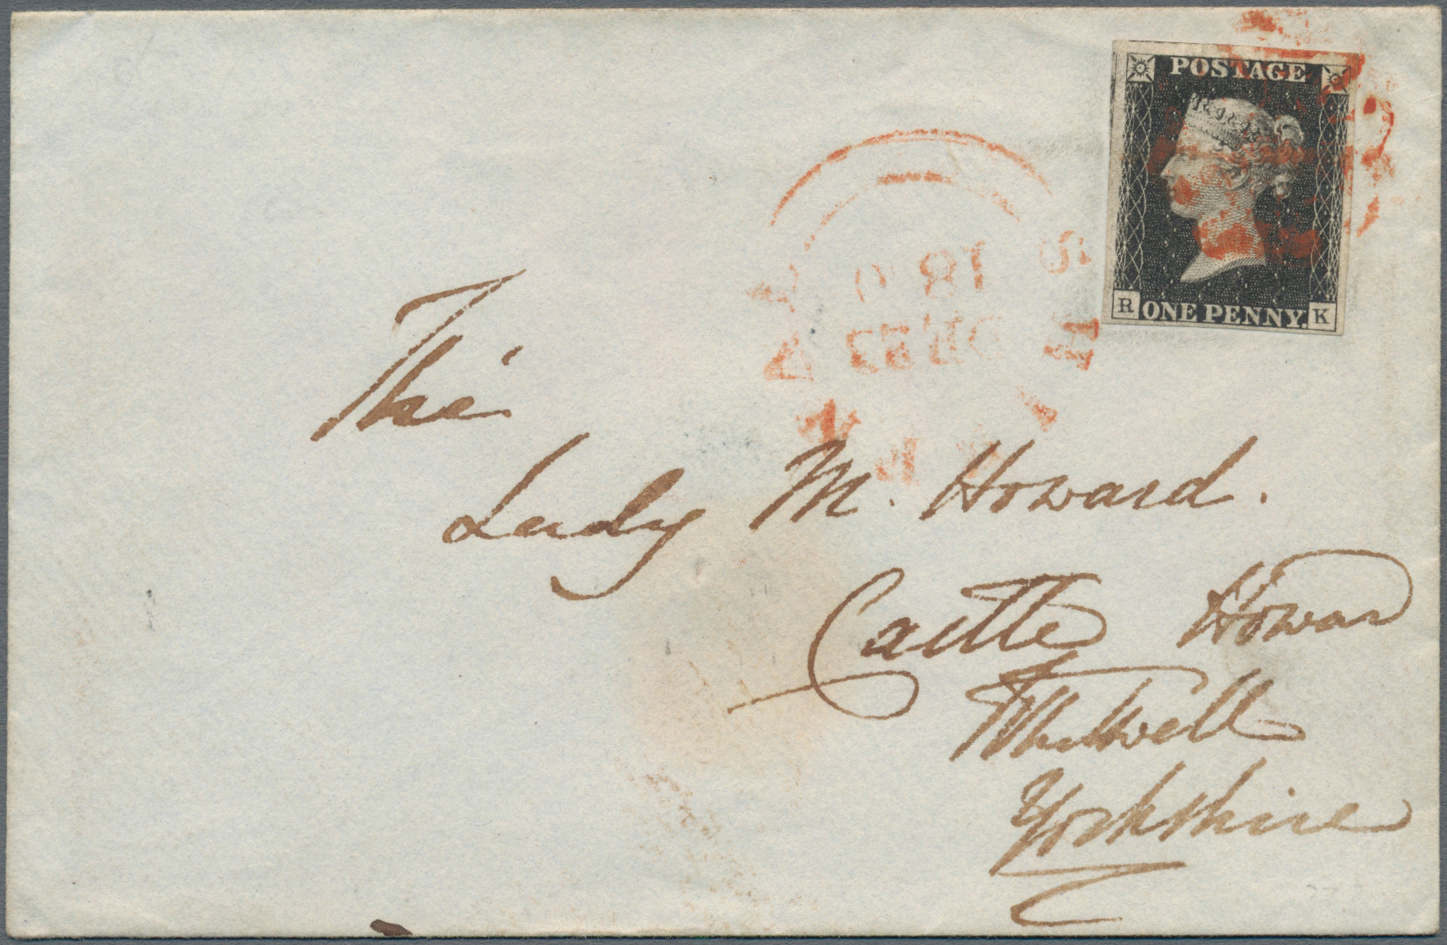 POSTAGE
R ONE PENNY. K
The
Lady M. Howard.
Castle Howard
Whitwell
Yorkshire